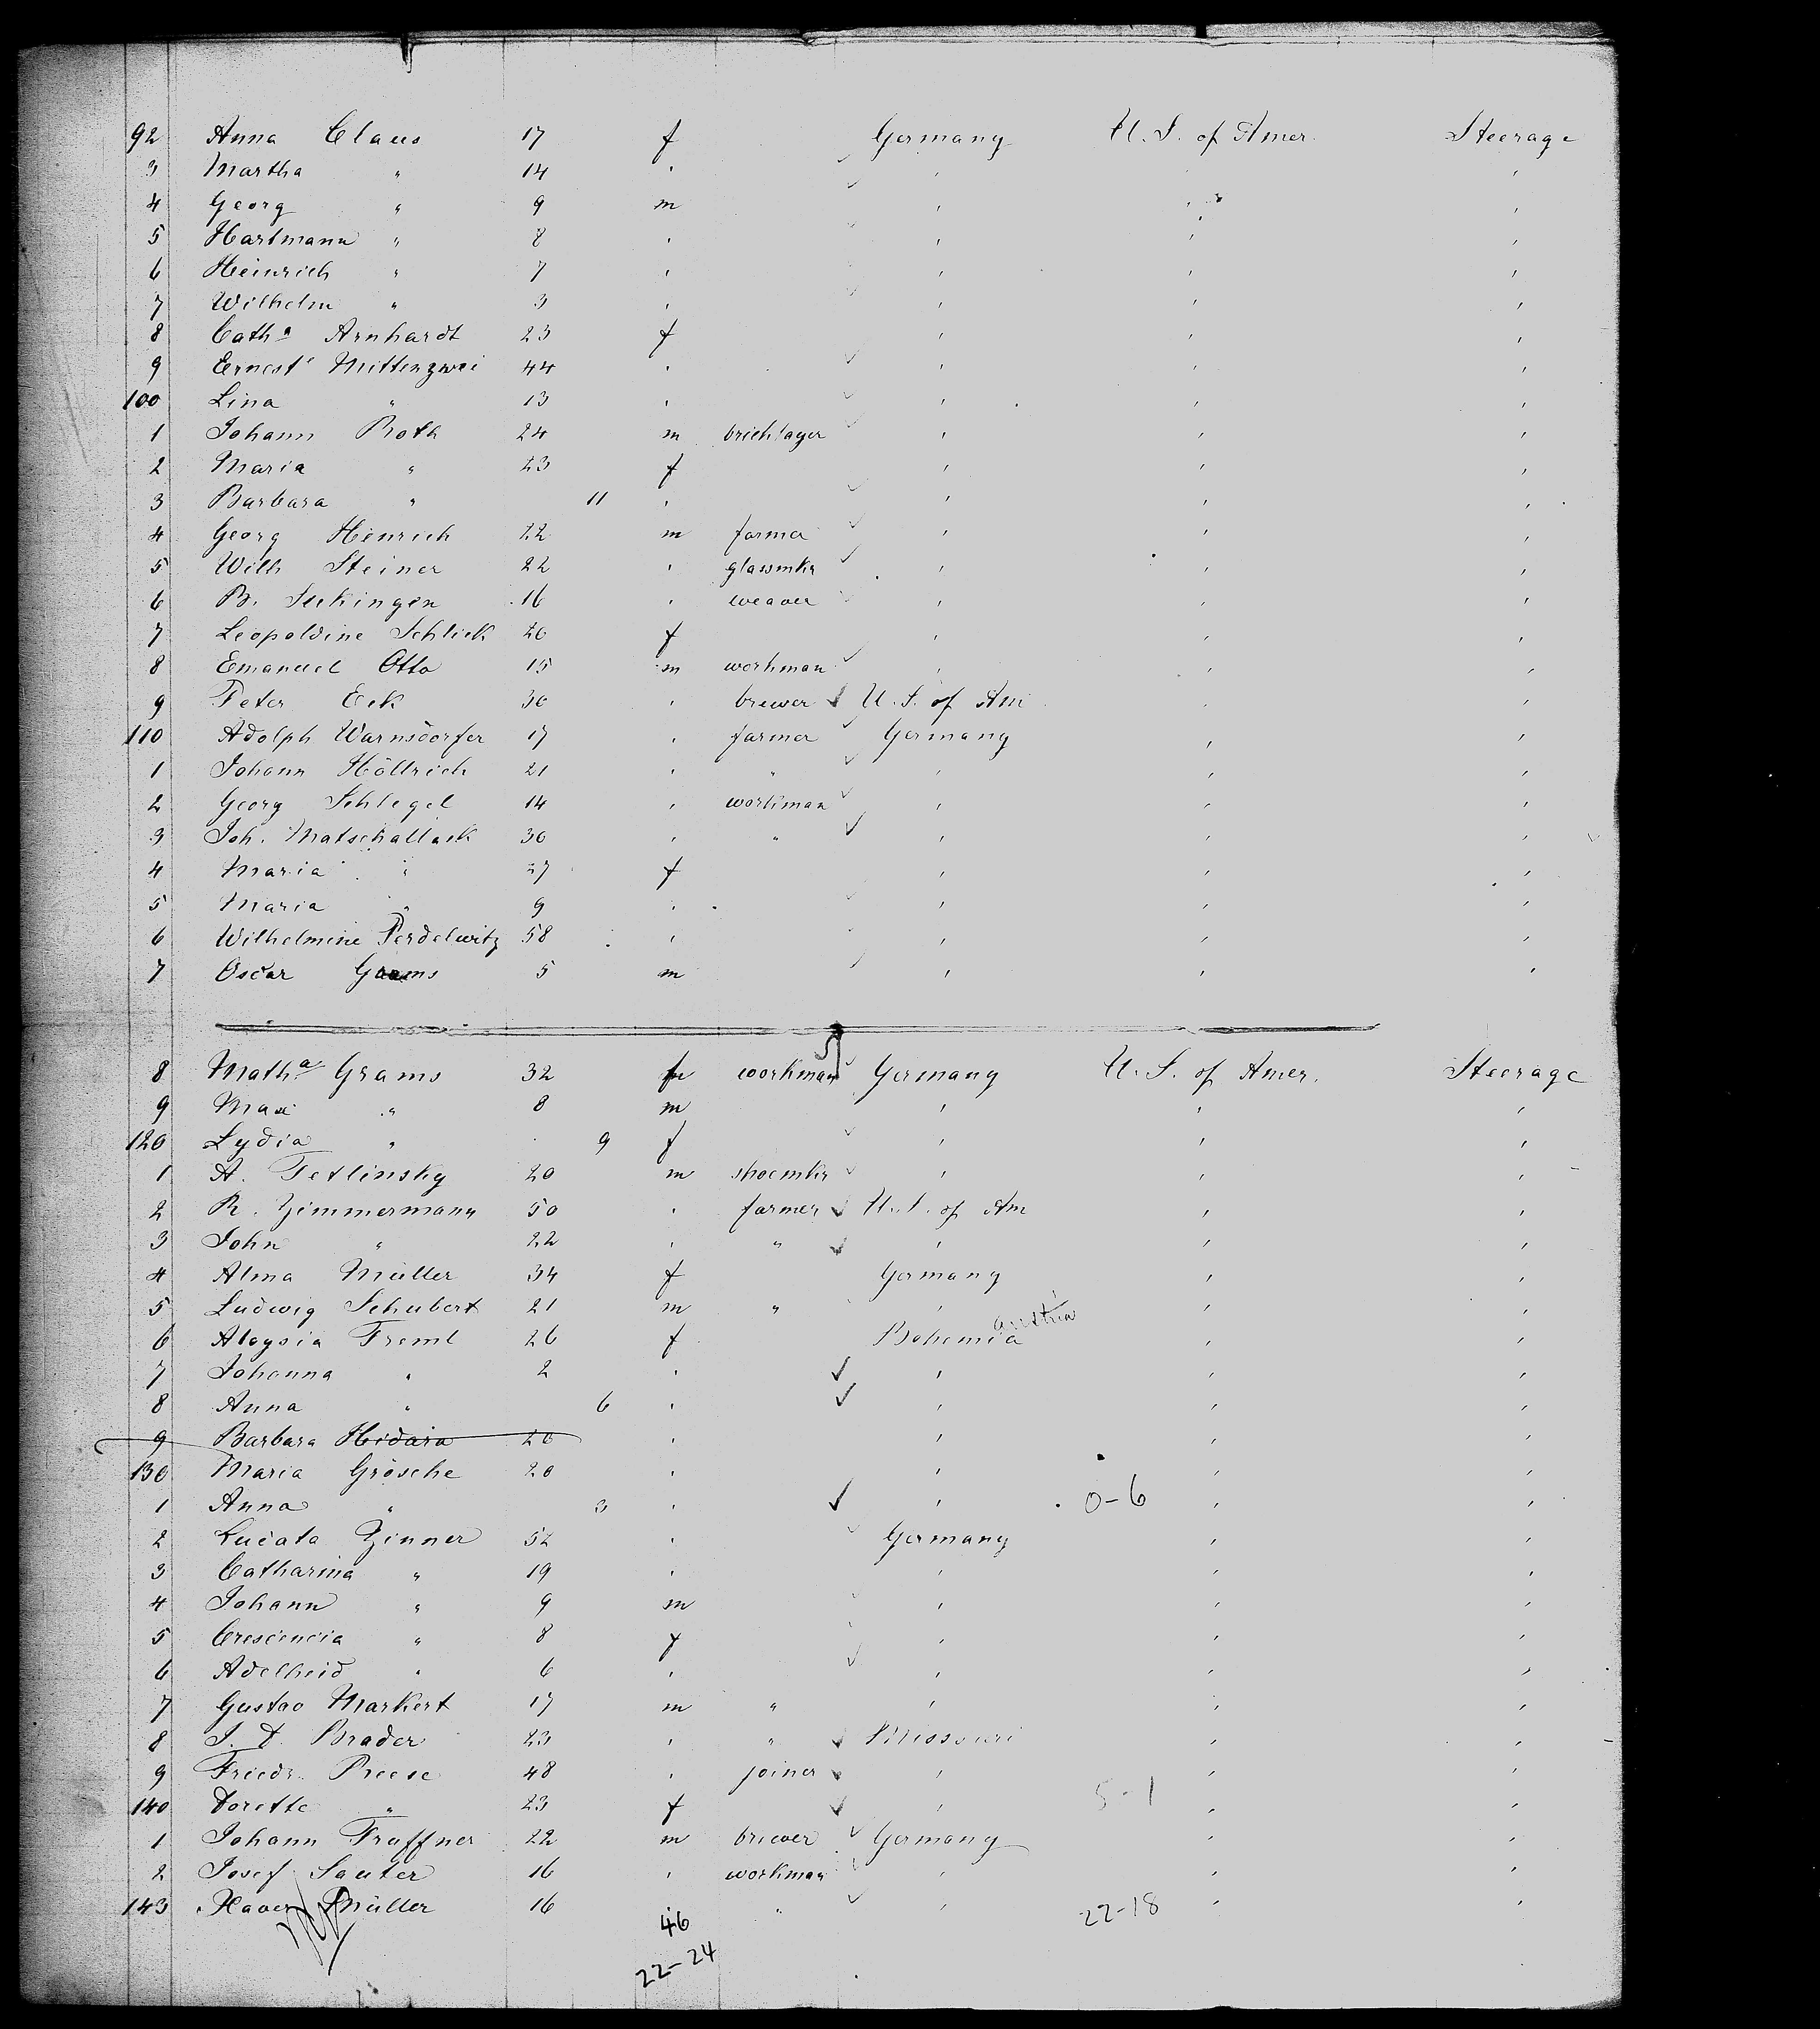 92 Anna Claus 17 f Germany U. S. of Amer. Steerage
3 Martha " 14 " ✓ " " "
4 Georg " 9 m ✓ " " "
5 Hartmann " 8 " ✓ " " "
6 Heinrich " 7 " " " "
7 Wilhelm " 3 " ✓ " " "
8 Catha Arnhardt 23 f " " "
9 Ernest Mittenzwei 44 " ✓ " " "
100 Lina " 13 " ✓ " " "
1 Johann Roth 24 m bricklayer ✓ " " "
2 Maria " 23 f " " "
3 Barbara " 11 " ✓ " " "
4 Georg Henrich 22 m farmer ✓ " " "
5 Wilh Steiner 22 " glassmkr ✓ " " "
6 B. Seckingen 16 " weaver ✓ " " "
7 Leopoldine Schlick 20 f " " "
8 Emanuel Otto 15 m workman ✓ " " "
9 Peter Eck 30 " brewer ✓ U. S. of Am " "
110 Adolph Warnsdorfer 17 " farmer ✓ Germany " "
1 Johann Höllrich 21 " " ✓ " " "
2 Georg Schlegel 14 " workman ✓ " " "
3 Joh. Matschallack 30 " " ✓ " " "
4 Maria " 27 f " " "
5 Maria " 9 " ✓ " " "
6 Wilhelmine Perdelwitz 58 " " " "
7 Oscar Grams 5 m ✓ " " "
8 Matha Grams 32 f workman ✓ Germany U. S. of Amer. Steerage
9 Max " 8 m " " "
120 Lydia " 9 f ✓ " " "
1 A. Tetlinsky 20 m shoemkr ✓ " " "
2 R. Zimmermann 50 " farmer ✓ U. S. of Am " "
3 John " 22 " " ✓ " " "
4 Alma Müller 34 f Germany " "
5 Ludwig Schubert 21 m " " " "
Austria
6 Aloysia Freml 26 f Bohemia " "
7 Johanna " 2 " ✓ " " "
8 Anna " 6 " ✓ " " "
9 Barbara Hidara 20 " " " "
130 Maria Grösche 20 " " " "
1 Anna " 3 " ✓ " 0-6 " "
2 Zinner 52 " ✓ Germany " "
3 Catharina " 19 " " " "
4 Johann " 9 m " " "
5 Crescencia " 8 f " " "
6 Adelheid " 6 " ✓ " " "
7 Gustav Markert 17 m " " " "
8 J. D. Brader 23 " " ✓ Missouri " "
9 Friedr. Reese 48 " joiner ✓ " " "
140 Dorette " 23 f ✓ " 5-1 " "
1 Johann Traffner 22 m brewer ✓ Germany " "
2 Josef Sauter 16 " workman ✓ " " "
143 Xaver Müller 16 " ✓ " 22-18 " "
46
22-24